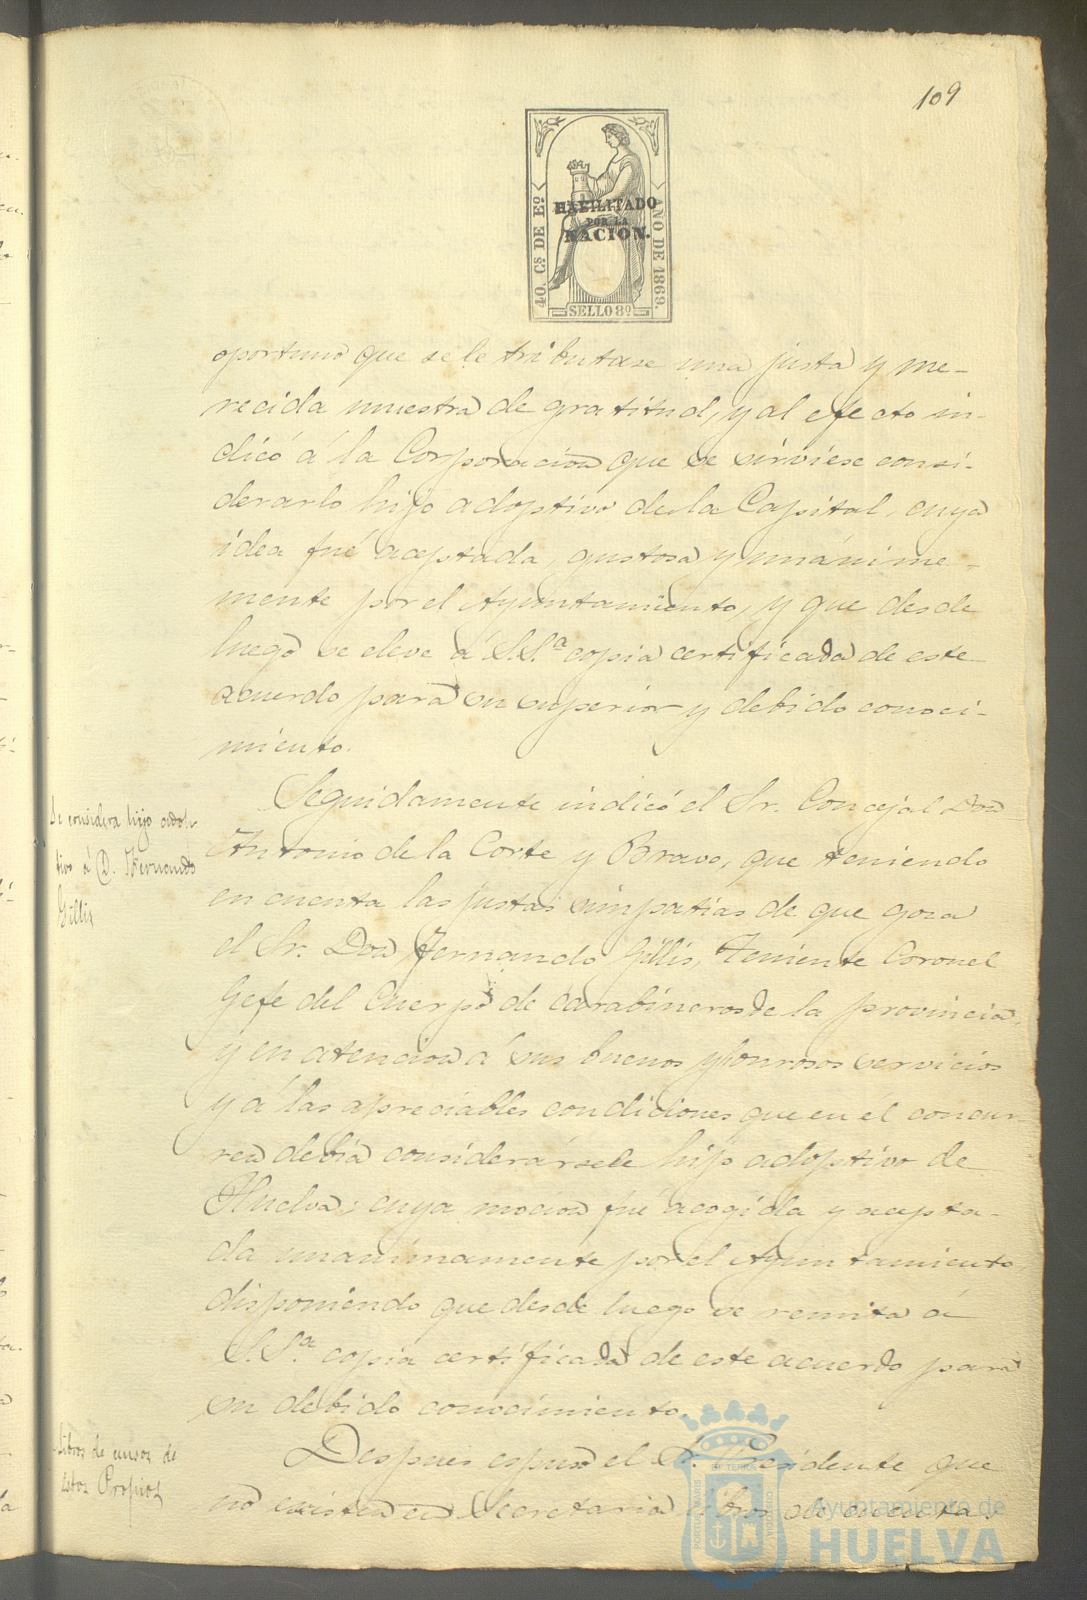 109
HABILITADO
POR LA
NACION.
40. Cs DE Eo
AÑO DE 1869.
SELLO 8º
oportuno que se le tributase una justa y me-
recida muestra de gratitud, y al efecto in-
dicó á la Corporacion que se sirviese consi-
derarlo hijo adoptivo de la Capital, cuya
idea fué aceptada, gustosa y unánime-
mente por el Ayuntamiento, y que desde
luego se eleve á S.S.ª copia certificada de este
acuerdo para su superior y debido conoci-
miento.
Se considera hijo adop-
tivo á D. Fernando
Gillis
Seguidamente indicó el Sr. Concejal Don
Antonio de la Corte y Bravo, que teniendo
en cuenta las justas simpatías de que goza
el Sr. Don Fernando Gillis, Teniente Coronel
Gefe del Cuerpo de carabineros de la provincia,
y en atencion á sus buenos y honrosos servicios
y á las apreciables condiciones que en él concur-
ren debia considerársele hijo adoptivo de
Huelva; cuya mocion fué acogida y acepta-
da unanimamente por el Ayuntamiento,
disponiendo que desde luego se remita a
S.S.ª copia certificada de este acuerdo para
su debido conocimiento.
Libros de censos de
estos Propios
Despues espuso el Sr. Presidente que
no existen en Secretaria libros de cuenta
Ayuntamiento de
HUELVA